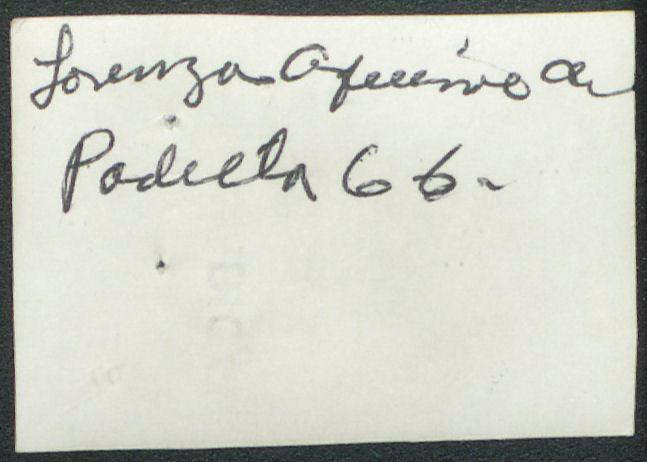 Lorenza Aquino de
Padilla 66.